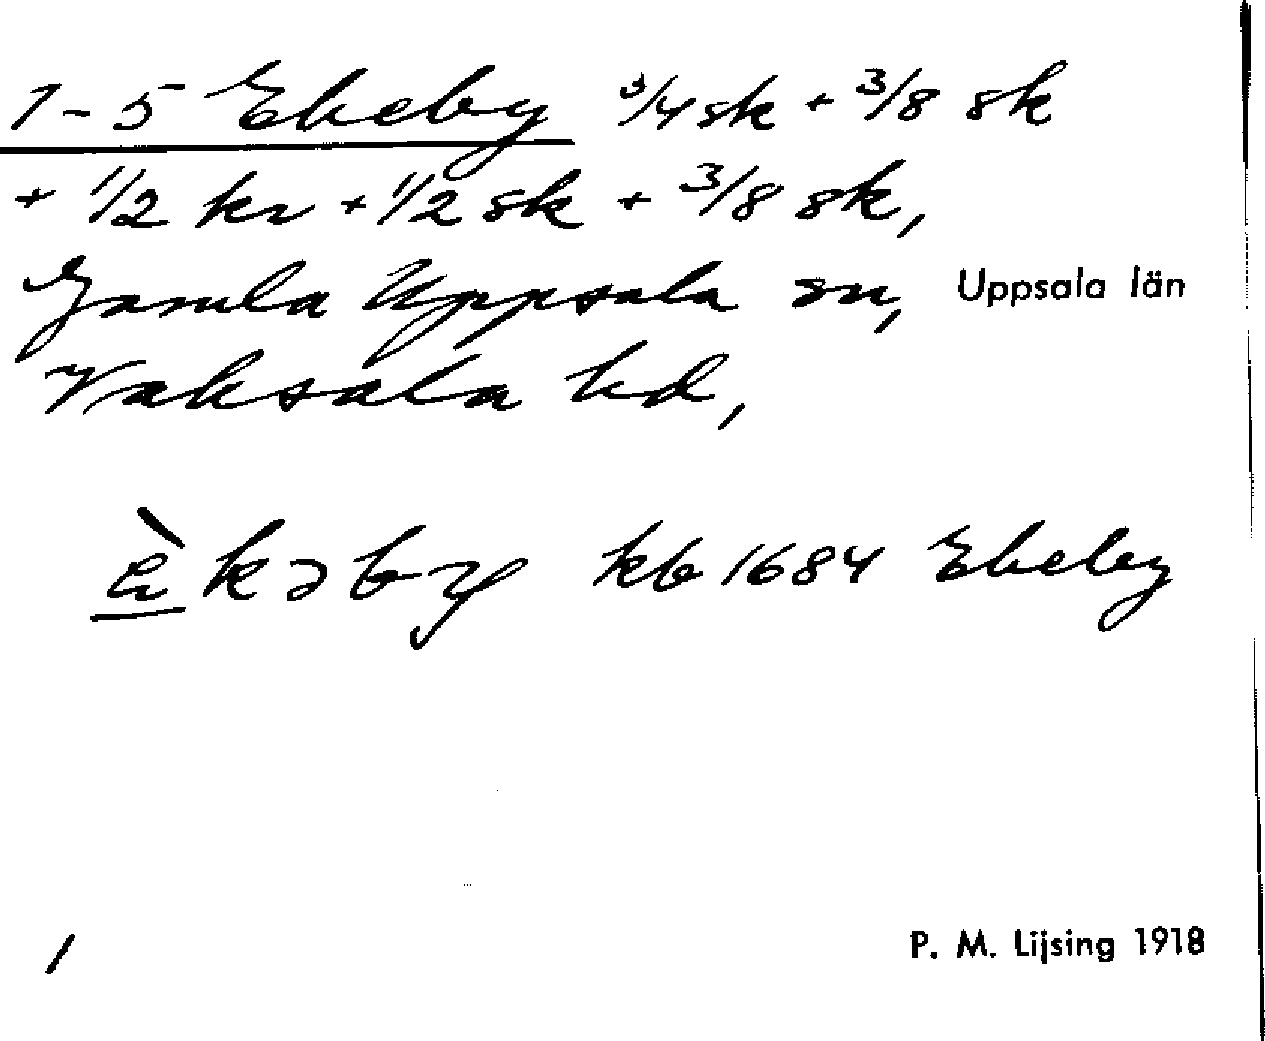 1-5 Ekeby 3/4 sk + 3/8 sk
+ 1/2 kr + 1/2 sk + 3/8 sk,
Gamla Uppsala sn, Uppsala län
Vaksala hd,
è̲kəby kb 1684 Ekeby
1 P. M. Lijsing 1918